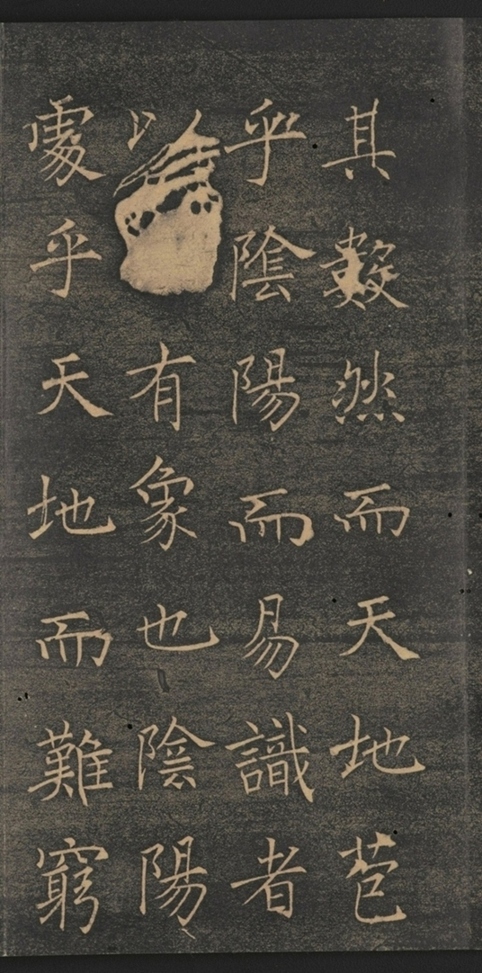 其數然而天地苞
乎陰陽而易識者
以有象也陰陽
處乎天地而難窮